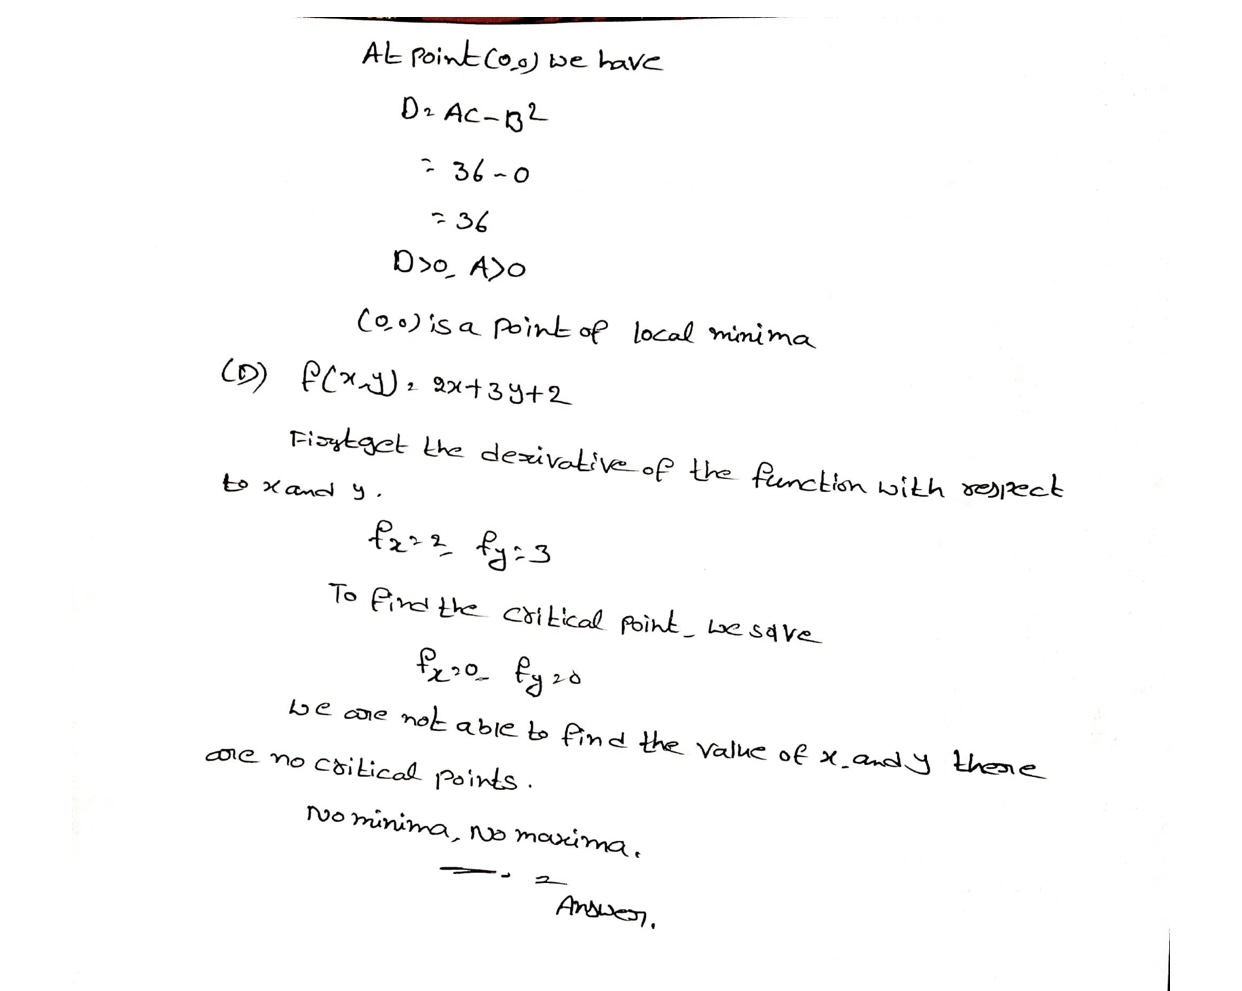 At point (0,0) we have
D = AC - B²
= 36 - 0
= 36
D>0, A>0
(0,0) is a point of local minima
(D) f(x,y) = 2x+3y+2
First get the derivative of the function with respect
to x and y.
fx = 2, fy = 3
To find the critical point, we solve
fx=0, fy=0
we are not able to find the value of x, and y there
are no critical points.
No minima, No maxima.
Answer.